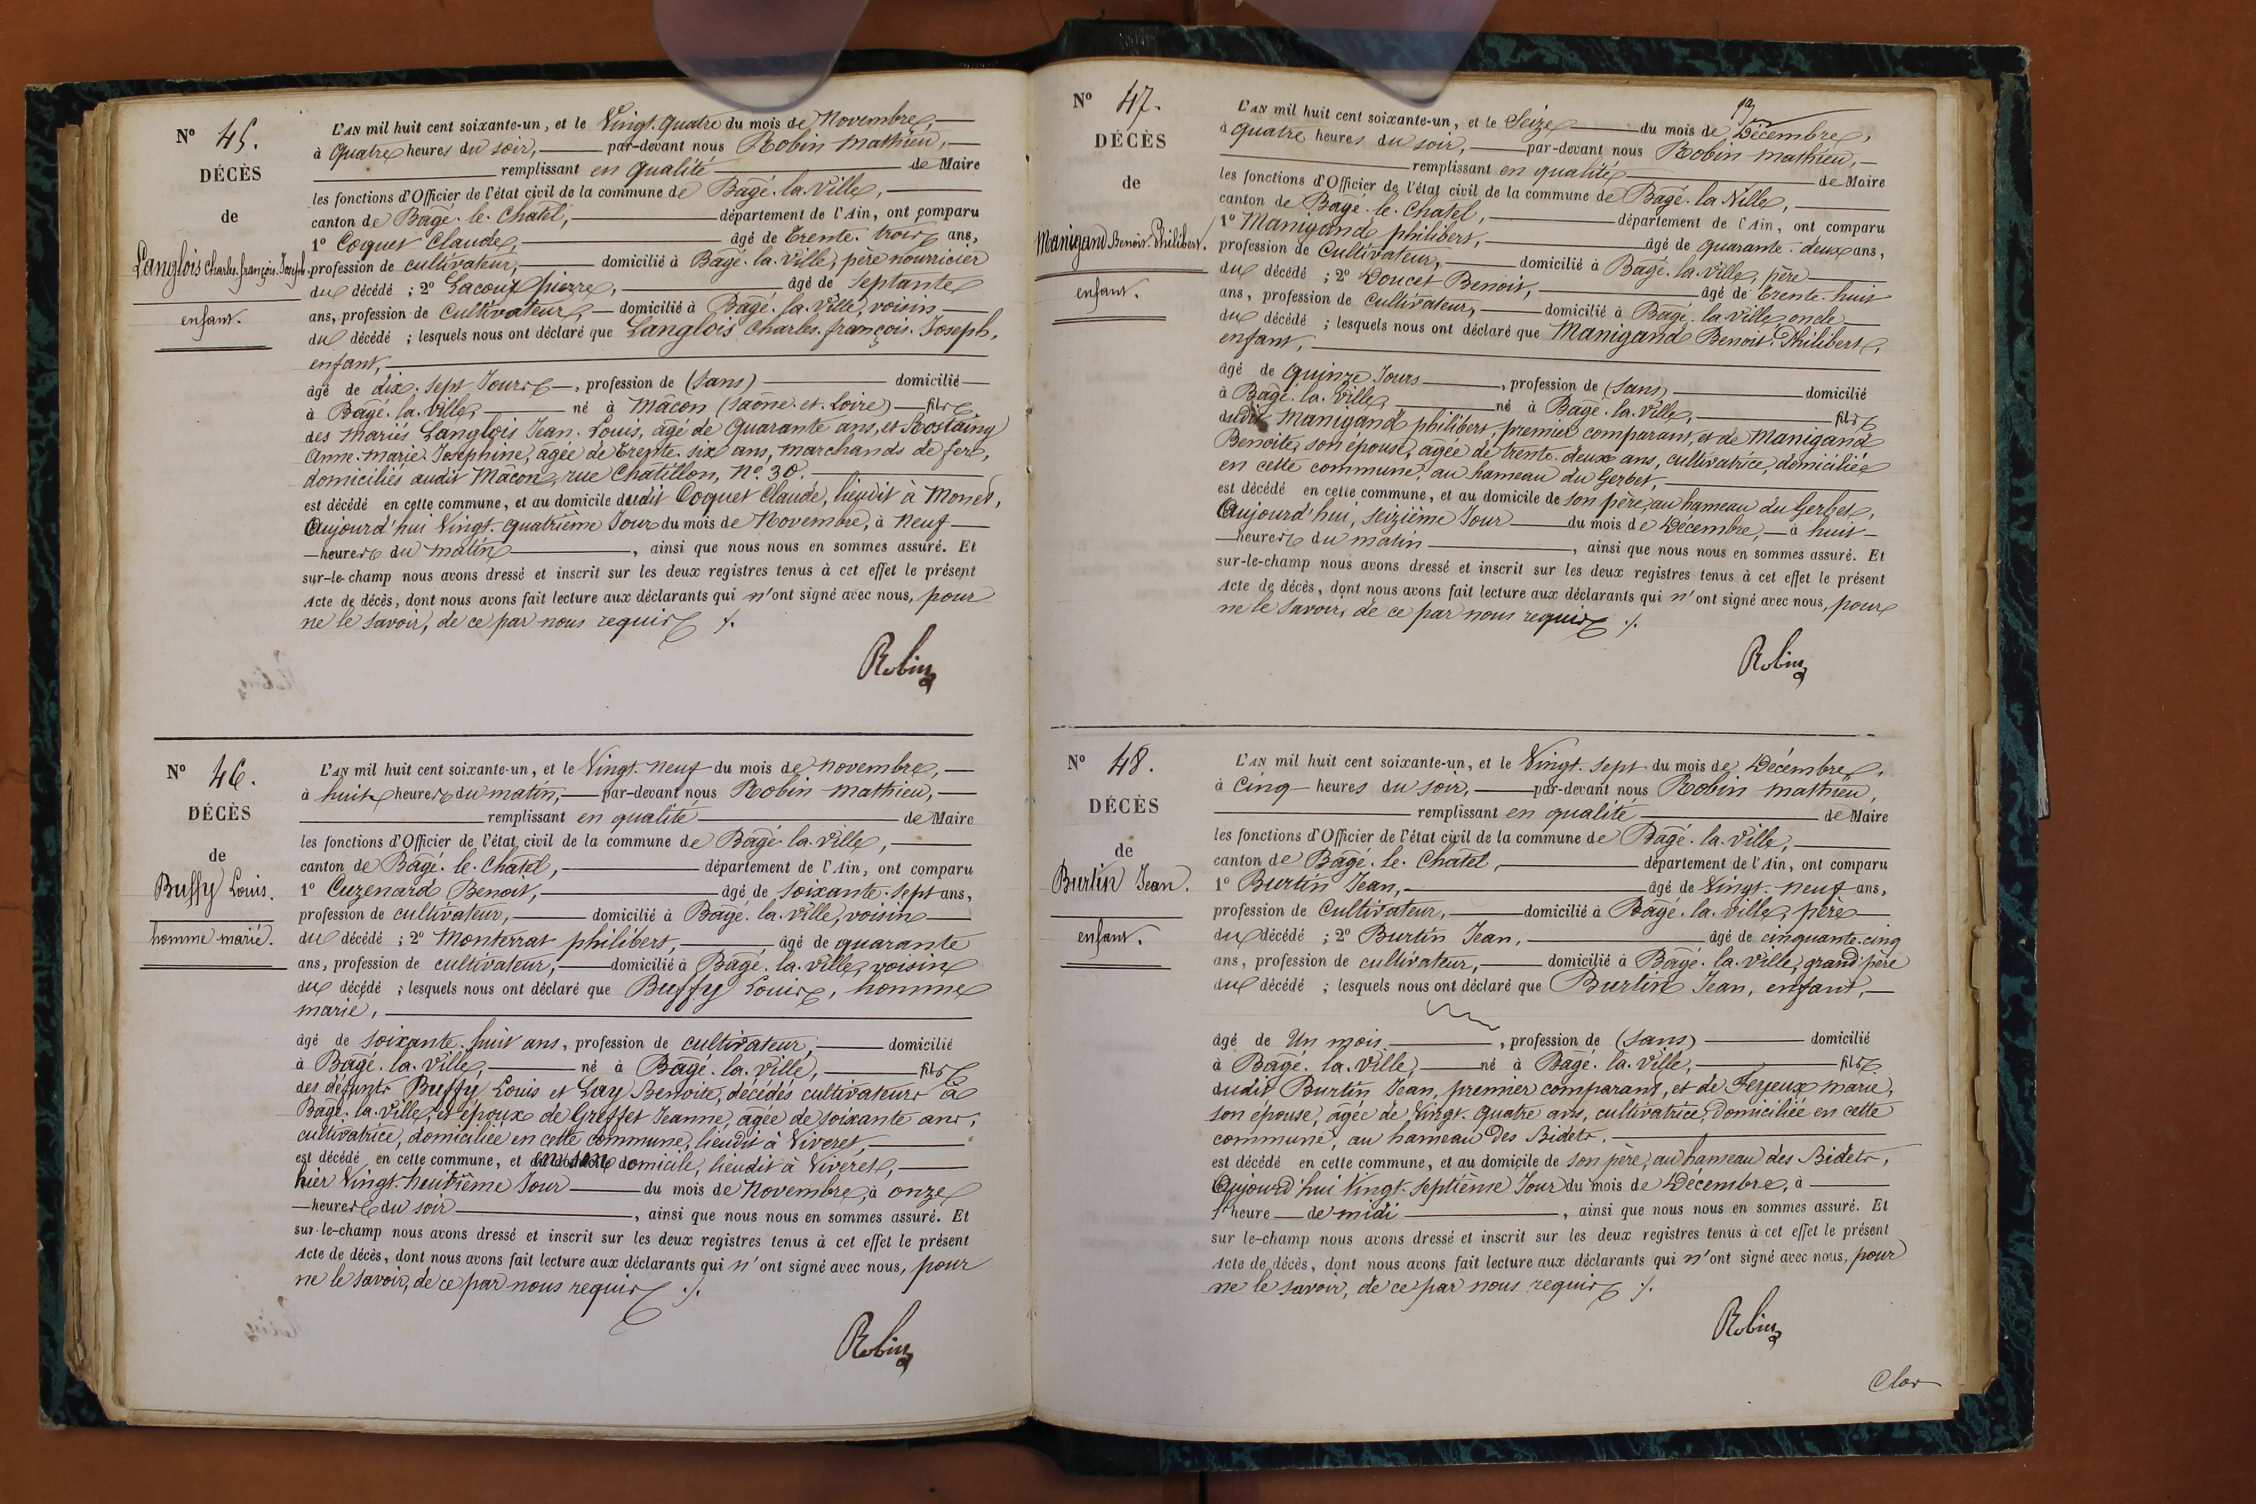 Nº 45.
DÉCÈS
de
Langlois Charles. françois. Joseph.
enfant.
L'AN mil huit cent soixante-un, et le Vingt. quatre du mois de Novembre,
à quatre heures du soir, par-devant nous Robin Mathieu,
remplissant en qualité de Maire
les fonctions d'Officier de l'état civil de la commune de Bagé. la. Ville,
canton de Bagé. le. Chatel, département de l'Ain, ont comparu
1º Coquet Claude, âgé de Trente. trois ans,
profession de cultivateur, domicilié à Bagé. la. Ville, père nourricier
du décédé ; 2º Lacour pierre, âgé de Septante
ans, profession de Cultivateur, domicilié à Bagé. la. Ville, voisin
du décédé ; lesquels nous ont déclaré que Langlois Charles. françois. Joseph.
enfant,
âgé de dix. sept Jours, profession de (sans) domicilié
à Bagé. la. Ville, né à Mâcon (Saône. et. Loire) fils
des mariés Langlois Jean. Louis, âgé de quarante ans, et Rostaing
Anne. Marie. Josephine, âgée de Trente. six ans, marchands de fer,
domiciliés audit Mâcon, rue Chatillon, Nº. 30.
est décédé en cette commune, et au domicile dudit Coquet Claude, lieudit à Monet,
Aujourd'hui Vingt. quatrième Jour du mois de Novembre, à neuf
heures du matin, ainsi que nous nous en sommes assuré. Et
sur-le-champ nous avons dressé et inscrit sur les deux registres tenus à cet effet le présent
Acte de décès, dont nous avons fait lecture aux déclarants qui n'ont signé avec nous, pour
ne le savoir, de ce par nous requis ./.
Robin
Nº 46.
DÉCÈS
de
Buffy Louis.
homme marié.
L'AN mil huit cent soixante-un, et le Vingt. neuf du mois de novembre,
à huit heures du matin, par-devant nous Robin Mathieu,
remplissant en qualité de Maire
les fonctions d'Officier de l'état civil de la commune de Bagé. la. Ville,
canton de Bagé. le. Chatel, département de l'Ain, ont comparu
1º Cuzenard Benoit, âgé de soixante. sept ans,
profession de cultivateur, domicilié à Bagé. la. Ville, voisin
du décédé ; 2º Monterrat philibert, âgé de quarante
ans, profession de cultivateur, domicilié à Bagé. la. Ville, voisin
du décédé ; lesquels nous ont déclaré que Buffy Louis, homme
marié,
âgé de soixante. huit ans, profession de cultivateur, domicilié
à Bagé. la. Ville, né à Bagé. la. Ville, fils
des défunts Buffy Louis et Lay Benoite, décédés cultivateurs à
Bagé. la. Ville, et époux de Greffet Jeanne, âgée de soixante ans,
cultivatrice, domiciliée en cette commune, lieudit à Viveret,
est décédé en cette commune, et en son domicile, lieudit à Viveret,
hier Vingt. huitième Jour du mois de Novembre, à onze
heures du soir, ainsi que nous nous en sommes assuré. Et
sur-le-champ nous avons dressé et inscrit sur les deux registres tenus à cet effet le présent
Acte de décès, dont nous avons fait lecture aux déclarants qui n'ont signé avec nous, pour
ne le savoir, de ce par nous requis ./.
Robin
Nº 47.
DÉCÈS
de
Manigand Benoit. Philibert.
enfant.
L'AN mil huit cent soixante-un, et le Seize du mois de Décembre,
à quatre heures du soir, par-devant nous Robin Mathieu,
remplissant en qualité de Maire
les fonctions d'Officier de l'état civil de la commune de Bagé. la Ville,
canton de Bagé. le. Chatel, département de l'Ain, ont comparu
1º Manigand philibert, âgé de quarante. deux ans,
profession de Cultivateur, domicilié à Bagé. la. Ville, père
du décédé ; 2º Doucet Benoit, âgé de Trente. huit
ans, profession de Cultivateur, domicilié à Bagé. la. Ville, oncle
du décédé ; lesquels nous ont déclaré que Manigand Benoit. Philibert,
enfant,
âgé de quinze Jours, profession de (sans) domicilié
à Bagé. la. Ville, né à Bagé. la. Ville, fils
dudit Manigand philibert, premier comparant, et de Manigand
Benoite, son épouse, âgée de trente. deux ans, cultivatrice, domiciliée
en cette commune, au hameau du Gerbet,
est décédé en cette commune, et au domicile de son père, au hameau du Gerbet,
Aujourd'hui, seizième Jour du mois de Décembre, à huit
heures du matin, ainsi que nous nous en sommes assuré. Et
sur-le-champ nous avons dressé et inscrit sur les deux registres tenus à cet effet le présent
Acte de décès, dont nous avons fait lecture aux déclarants qui n'ont signé avec nous, pour
ne le savoir, de ce par nous requis ./.
Robin
Nº 48.
DÉCÈS
de
Burtin Jean.
enfant.
L'AN mil huit cent soixante-un, et le Vingt. sept du mois de Décembre,
à Cinq heures du soir, par-devant nous Robin Mathieu,
remplissant en qualité de Maire
les fonctions d'Officier de l'état civil de la commune de Bagé. la. Ville,
canton de Bagé. le. Chatel, département de l'Ain, ont comparu
1º Burtin Jean, âgé de Vingt. neuf ans,
profession de Cultivateur, domicilié à Bagé. la. Ville, père
du décédé ; 2º Burtin Jean, âgé de cinquante. cinq
ans, profession de cultivateur, domicilié à Bagé. la. Ville, grand père
du décédé ; lesquels nous ont déclaré que Burtin Jean, enfant,
âgé de Un mois, profession de (sans) domicilié
à Bagé. la. Ville, né à Bagé. la. Ville, fils
dudit Burtin Jean, premier comparant, et de Ferjeux Marie,
son épouse, âgée de Vingt. quatre ans, cultivatrice, domiciliée en cette
commune, au hameau des Bidets.
est décédé en cette commune, et au domicile de son père, au hameau des Bidets,
Aujourd'hui Vingt. septième Jour du mois de Décembre, à
1 heure de midi, ainsi que nous nous en sommes assuré. Et
sur-le-champ nous avons dressé et inscrit sur les deux registres tenus à cet effet le présent
Acte de décès, dont nous avons fait lecture aux déclarants qui n'ont signé avec nous, pour
ne le savoir, de ce par nous requis ./.
Robin
Clos